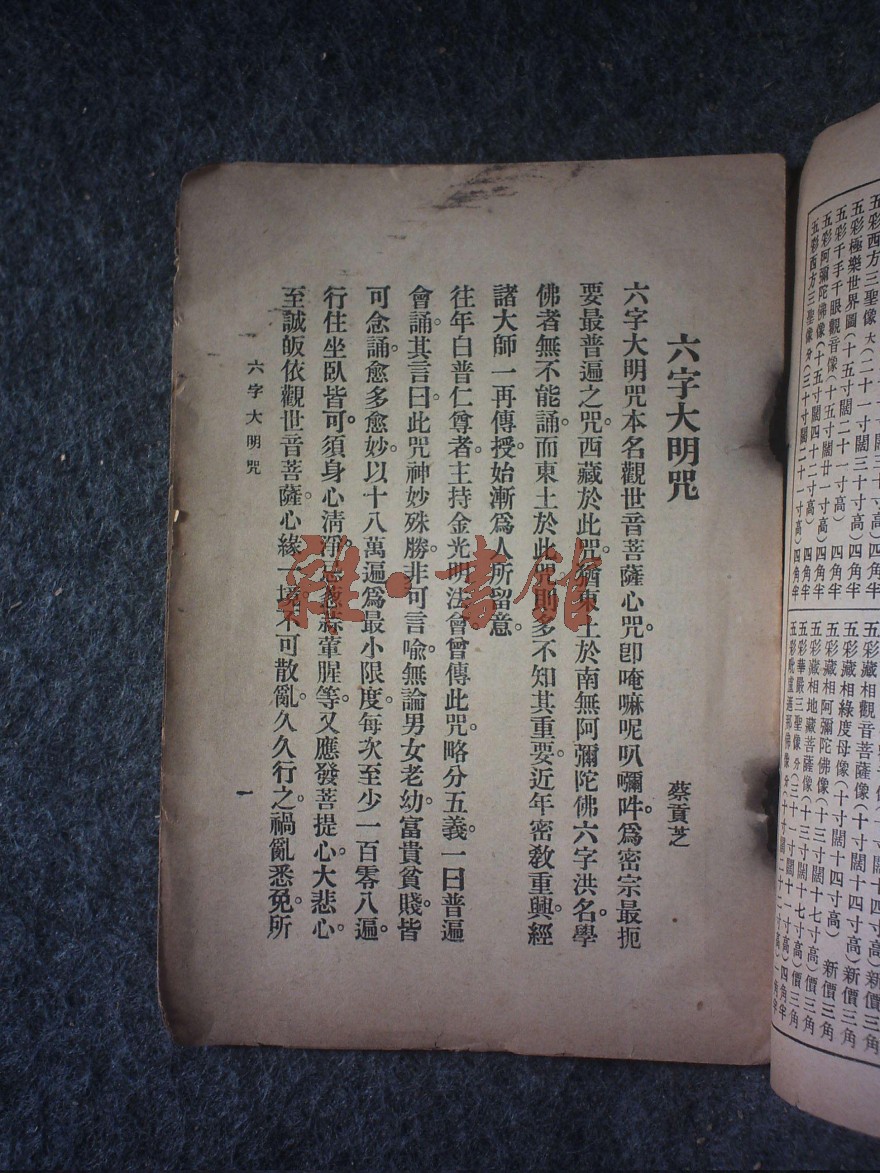 六字大明咒
蔡貢芝
六字大明咒本名觀世音菩薩心咒。卽唵嘛呢叭彌吽。爲密宗最扼
要最普遍之咒。西藏於此咒。猶東土於南無阿彌陀佛六字洪名。學
佛者無不能誦。而東土於此咒則多不知其重要。近年密敎重興。經
諸大師一再傳授。始漸爲人所留意。
往年白普仁尊者。主持金光明法會。曾傳此咒。略分五義。一曰普遍
會誦。其言曰。此咒神妙殊勝。非可言喩。無論男女老幼。富貴貧賤。皆
可念誦。愈多愈妙。以十八萬遍爲最小限度。每次至少一百零八遍。
行住坐臥皆可。須身心淸淨。忌葱蒜葷腥等。又應發菩提心。大悲心。
至誠皈依觀世音菩薩。心緣一境。不可散亂。久久行之。禍亂悉免。所
六字大明咒
一
雜·書館
五彩西方三聖像 大(二十一寸闊三十寸高)四角半
五彩極樂世界圖(十五寸闊二十一寸高)四角半
五彩千手千眼觀音像(十五寸闊廿一寸高)四角半
五彩阿彌陀佛像(十五寸闊四十二寸高)四角半
五彩西方三聖像 分(三十寸闊二十一寸高)四角半
五彩藏相觀音菩薩像(十寸闊十四寸高)新價三角
五彩藏相綠度母像(十寸闊十四寸高)新價三角
五彩藏相阿彌陀佛像(十寸闊十四寸高)新價三角
五彩藏相地藏菩薩像(十三寸闊十七寸高)價三角
五彩華嚴三聖像